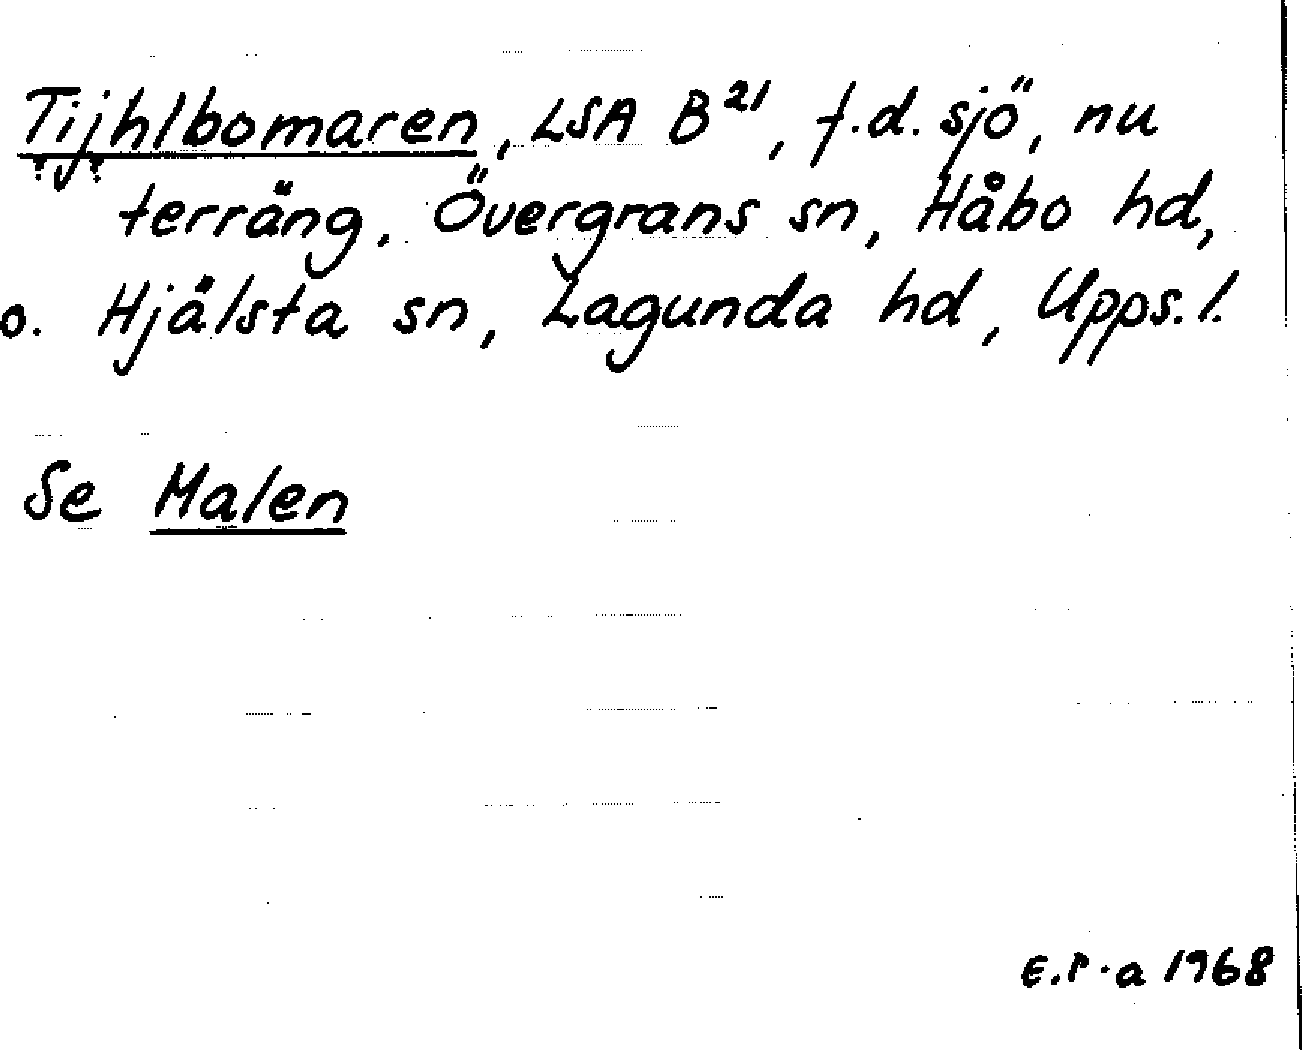 Tijhlbomaren, LSA B²¹, f.d. sjö, nu
terräng, Övergrans sn, Håbo hd,
o. Hjälsta sn, Lagunda hd, Upps. l.
Se Malen
E.P-a 1968